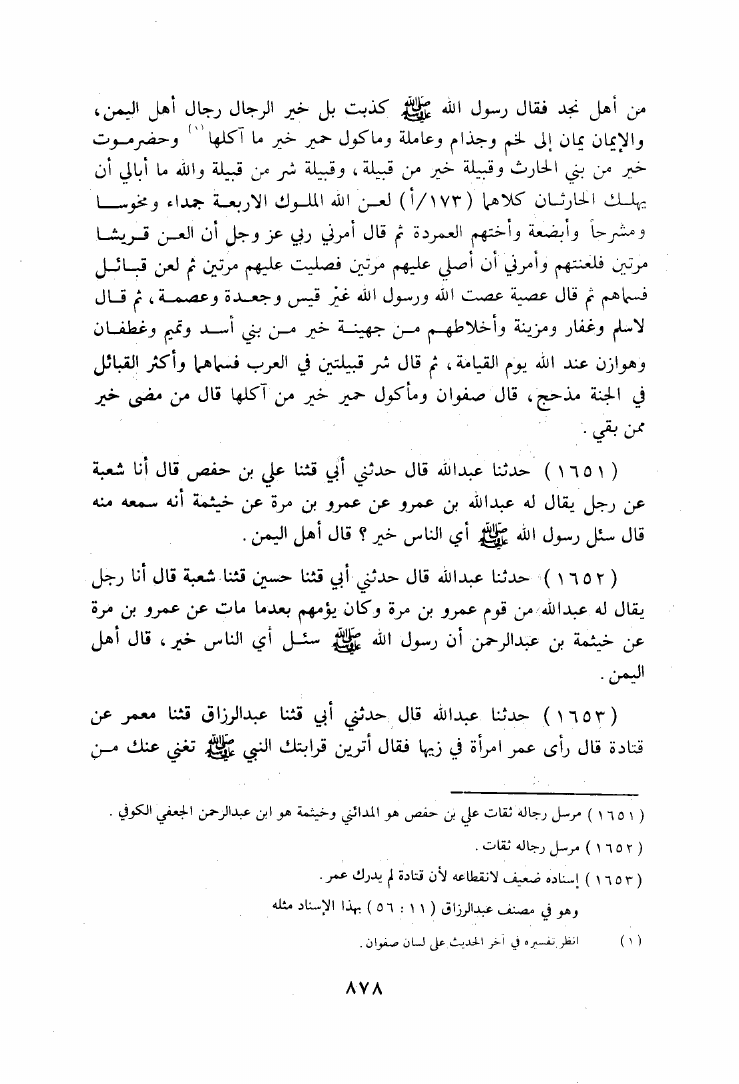 من أهل نجد فقال رسول الله ﷺ كذبت بل خير الرجال رجال أهل اليمن،
والإيمان يمان إلى لخم وجذام وعاملة وماكول حمير خير ما آكلها(١) وحضرمـوت
خير من بني الحارث وقبيلة خير من قبيلة، وقبيلة شر من قبيلة والله ما أبالي أن
يهلـك الحارثـان كلاهما (١٧٣/أ) لعـن الله الملـوك الاربعـة جمداء ومخوسـا
ومشرحاً وأبضعة وأختهم العمردة ثم قال أمرني ربي عز وجل أن العـن قـريشـا
مرتين فلعنتهم وأمرني أن أصلي عليهم مرتين فصليت عليهم مرتين ثم لعن قبـائـل
فسماهم ثم قال عصية عصت الله ورسول الله غير قيس وجعـدة وعصمـة، ثم قـال
لاسلم وغفار ومزينة وأخلاطهـم مـن جهينـة خير مـن بني أسـد وتميم وغطفـان
وهوازن عند الله يوم القيامة، ثم قال شر قبيلتين في العرب فسماهما وأكثر القبائل
في الجنة مذحج، قال صفوان ومأكول حمير خير من آكلها قال من مضى خير
ممن بقي.
(١٦٥١) حدثنا عبدالله قال حدثني أبي قثنا علي بن حفص قال أنا شعبة
عن رجل يقال له عبدالله بن عمرو عن عمرو بن مرة عن خيثمة أنه سمعه منه
قال سئل رسول الله ﷺ أي الناس خير؟ قال أهل اليمن.
(١٦٥٢) حدثنا عبدالله قال حدثني أبي قثنا حسين قثنا شعبة قال أنا رجل
يقال له عبدالله من قوم عمرو بن مرة وكان يؤمهم بعدما مات عن عمرو بن مرة
عن خيثمة بن عبدالرحمن أن رسول الله ﷺ سئـل أي الناس خير، قال أهل
اليمن.
(١٦٥٣) حدثنا عبدالله قال حدثني أبي قثنا عبدالرزاق قثنا معمر عن
قتادة قال رأى عمر امرأة في زيها فقال أترين قرابتك النبي ﷺ تغني عنك مـن
(١٦٥١) مرسل رجاله ثقات علي بن حفص هو المدائني وخيثمة هو ابن عبدالرحمن الجعفي الكوفي.
(١٦٥٢) مرسل رجاله ثقات.
(١٦٥٣) إسناده ضعيف لانقطاعه لأن قتادة لم يدرك عمر.
وهو في مصنف عبدالرزاق (١١ : ٥٦) بهذا الإسناد مثله
(١) انظر تفسيره في آخر الحديث على لسان صفوان.
٨٧٨